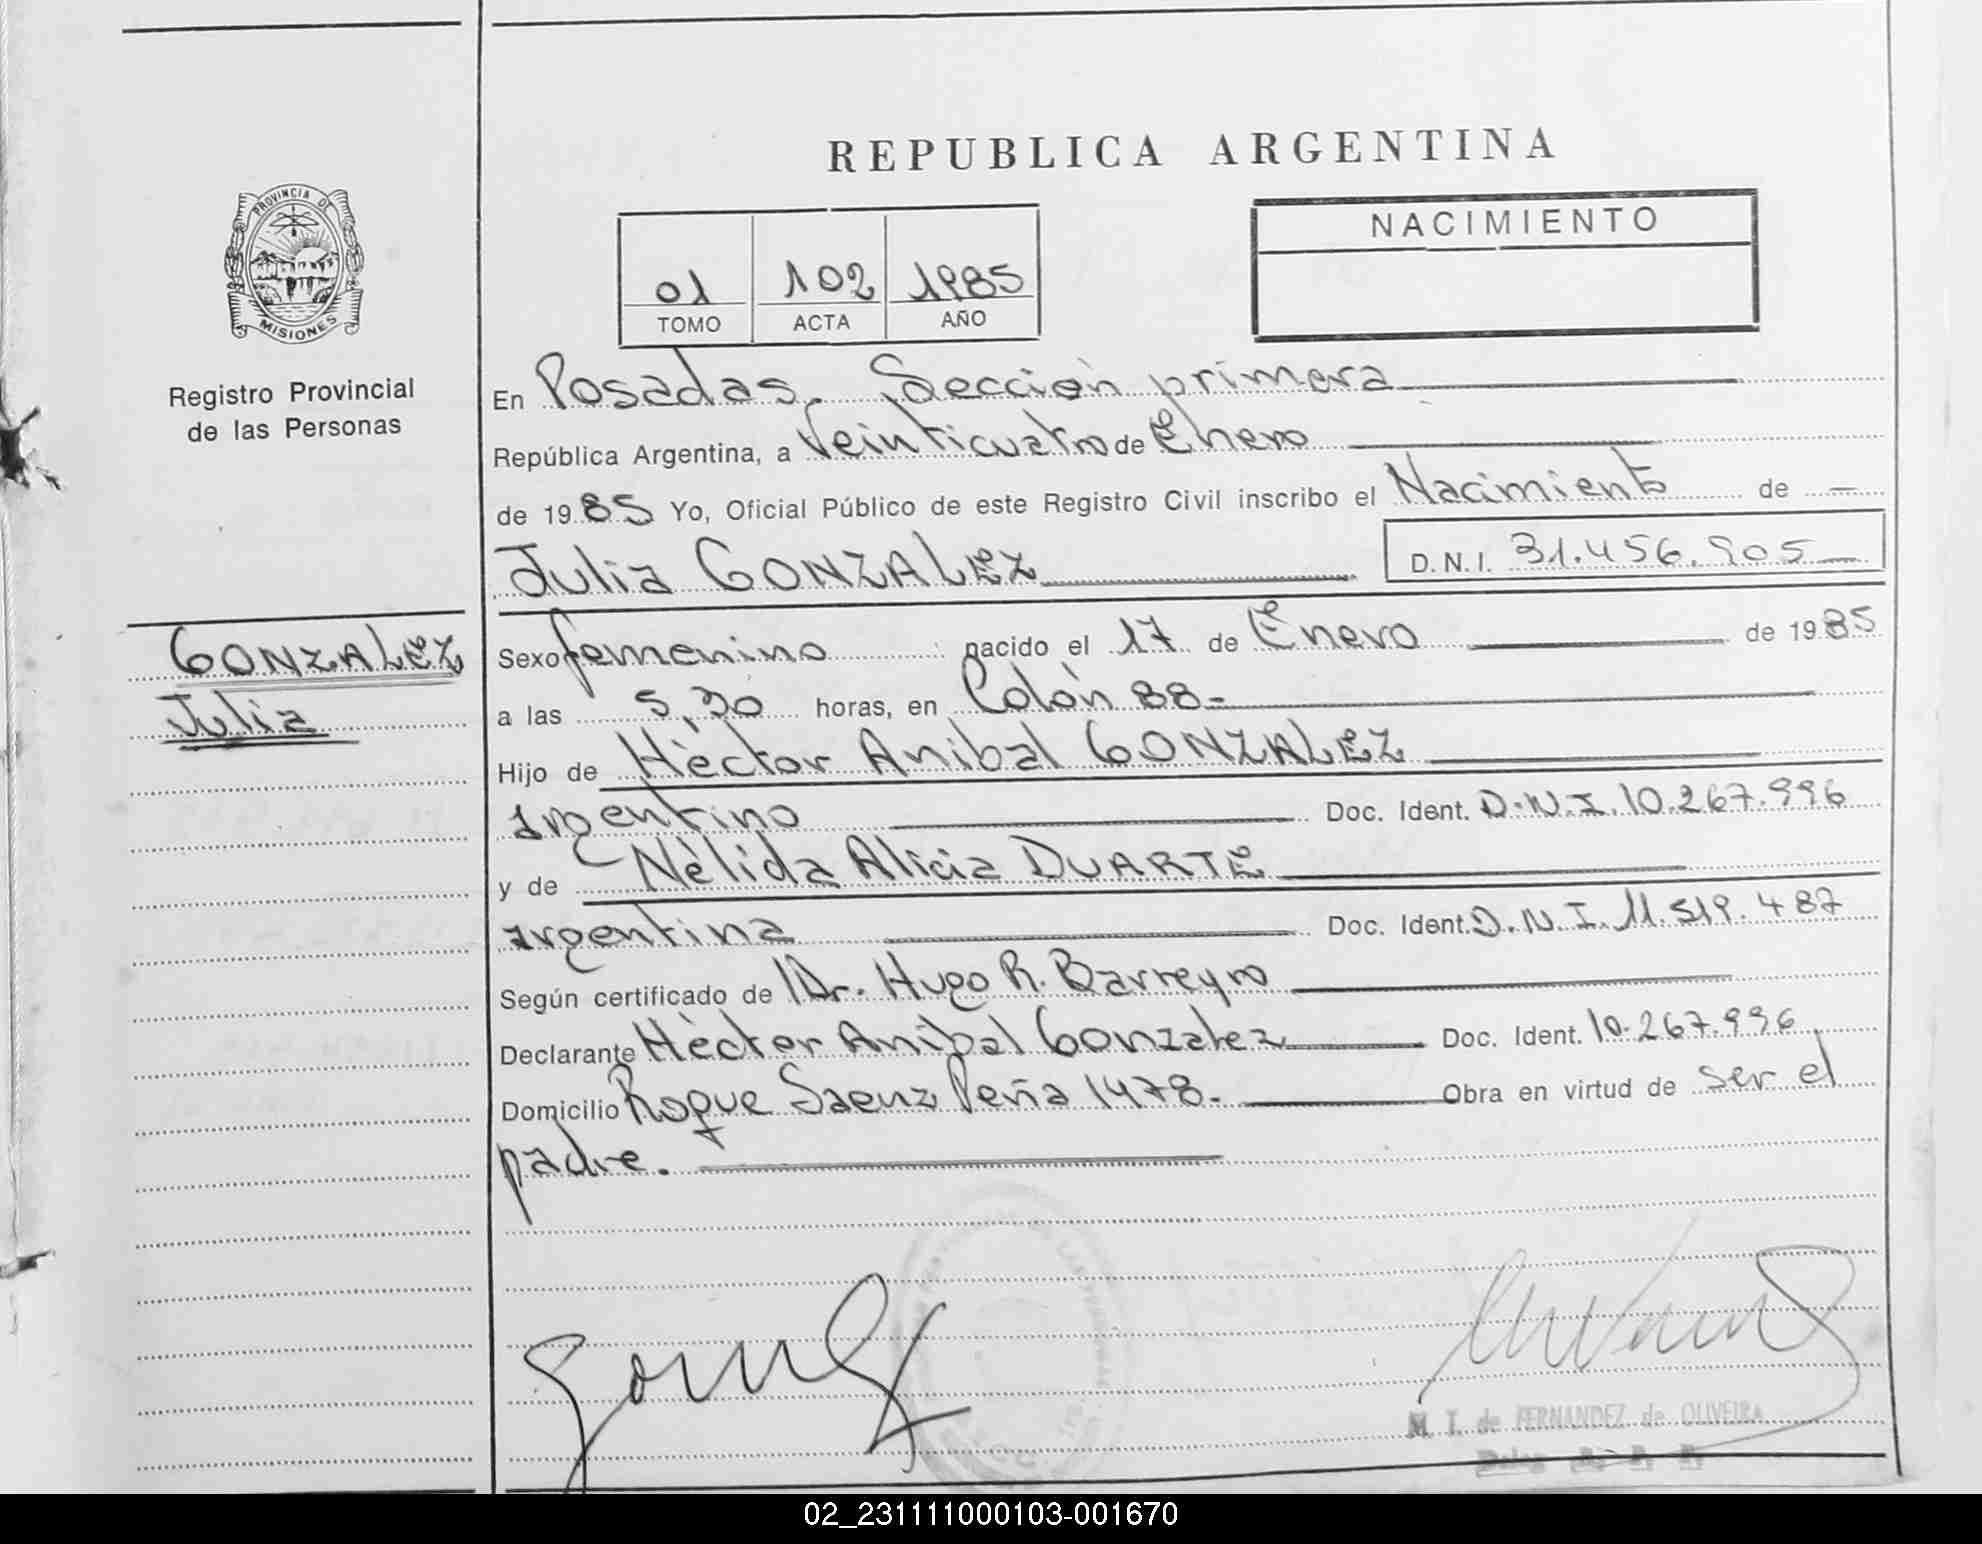 REPUBLICA ARGENTINA
PROVINCIA DE
MISIONES
Registro Provincial
de las Personas
01 102 1985
TOMO ACTA AÑO
NACIMIENTO
En Posadas. Sección primera
República Argentina, a Veinticuatro de Enero
de 1985 Yo, Oficial Público de este Registro Civil inscribo el Nacimiento de —
Julia GONZALEZ D.N.I. 31.456.905
GONZALEZ
Julia
Sexo femenino nacido el 17 de Enero de 1985
a las 5,30 horas, en Colón 88-
Hijo de Hèctor Anibal GONZALEZ
argentino Doc. Ident. D.N.I. 10.267.996
y de Nèlida Alicia DUARTE
argentina Doc. Ident. D.N.I. 11.519.487
Según certificado de Dr. Hugo R. Barreyro
Declarante Hècter Anibal Gonzalez Doc. Ident. 10.267.996
Domicilio Roque Saenz Peña 1478. Obra en virtud de ser el
padre.
M. I. de FERNANDEZ de OLIVEIRA
02_231111000103-001670